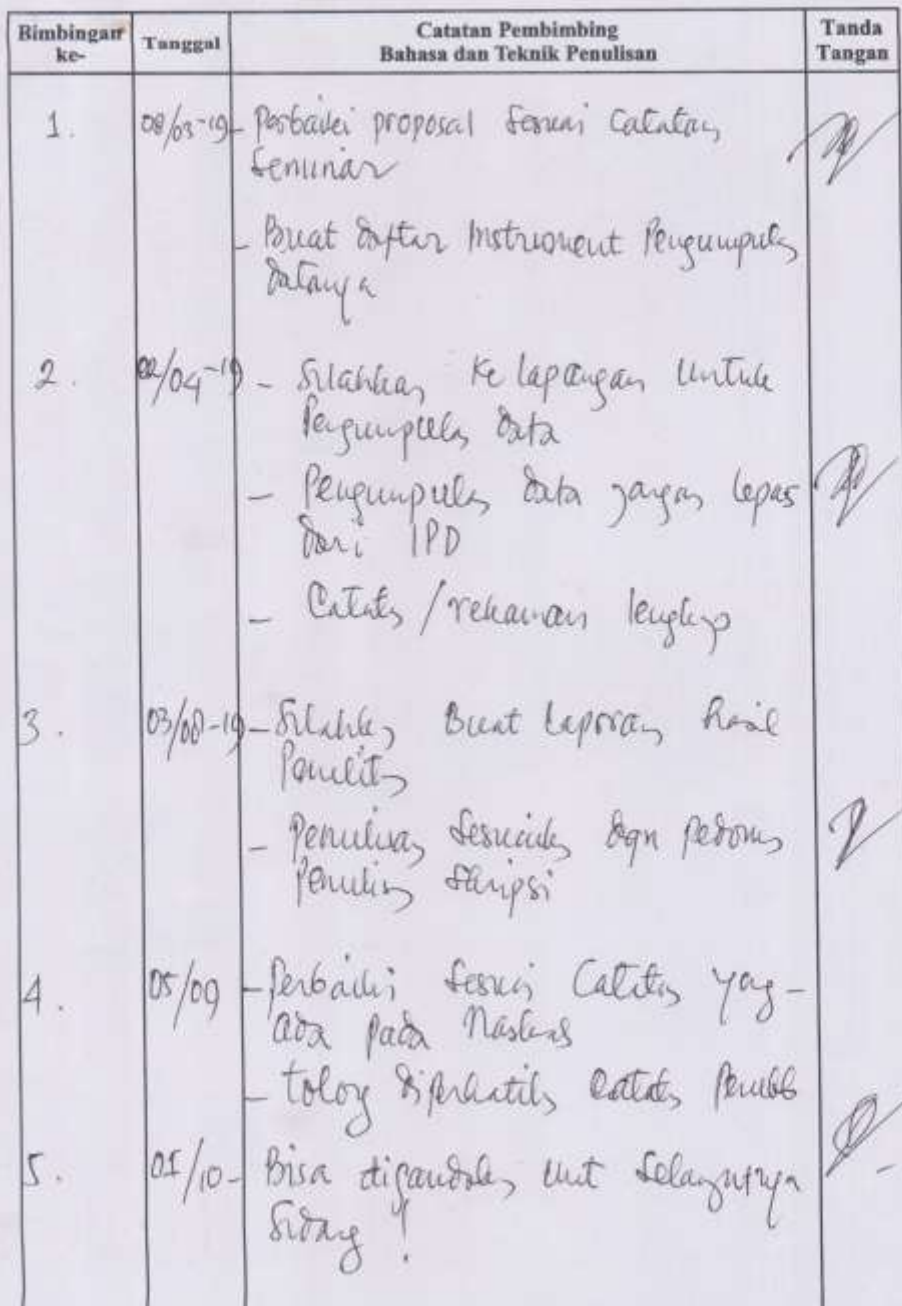 Bimbingan ke- Tanggal Catatan Pembimbing Bahasa dan Teknik Penulisan Tanda Tangan
1. 08/03-19 - Perbaiki proposal sesuai Catatan
Seminar
- Buat daftar Instrument Pengumpulan
datanya
2. 02/04-19 - Silahkan ke lapangan untuk
Pengumpulan data
- Pengumpulan data jangan lepas
dari IPD
- Catatan / rekaman lengkap
3. 03/08-19 - Silahkan Buat laporan hasil
Penelitian
- Penulisan sesuaikan dgn pedoman
Penulisan skripsi
4. 05/09 - Perbaiki sesuai Catatan yang -
ada pada Naskah
- tolong diperhatikan catatan
5. 01/10 - Bisa digandakan unt selanjutnya
Sidang !